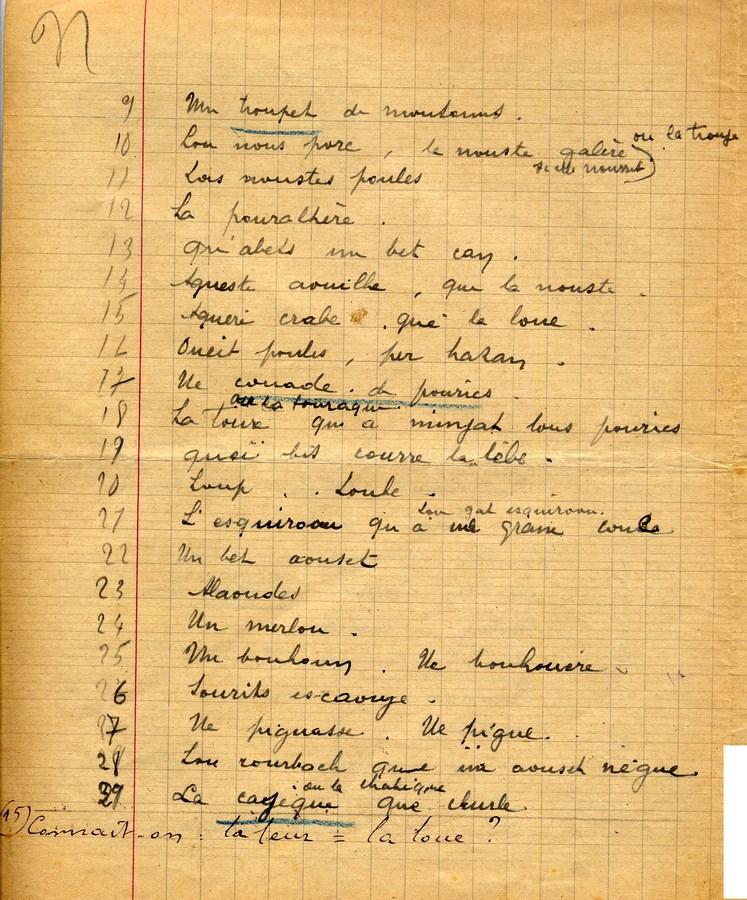 9 Un troupet de moutouns.
10 Lou nous porc, la nouste galère ou la trouje
se elle nourrit)
11 Las noustes poules
12 La pouralhère.
13 qu'abets un bet can.
14 Aqueste aouilhe, que la nouste.
15 Aquere crabe, que la loue.
16 Oueit poules, per hasan.
17 Ue couade de pouries.
ou la touraque
18 La touze que a minjat lous pouries
19 quoï bis courre la lèbe.
20 Loup. Loube.
Lou gat esquiroou.
21 L'esquiroou qu'a ue grane coude
22 Un bet aouset
23 Alaoudes
24 Un merlou.
25 Un bouhoun. Ue bouhouère
26 Sourits escaouye.
27 Ue piguasse. Ue pigue.
28 Lou rourbach que un aouset nègue
ou la chabèque
29 La cayèque que chiule.
(15) Connait-on : la leur = la loue ?